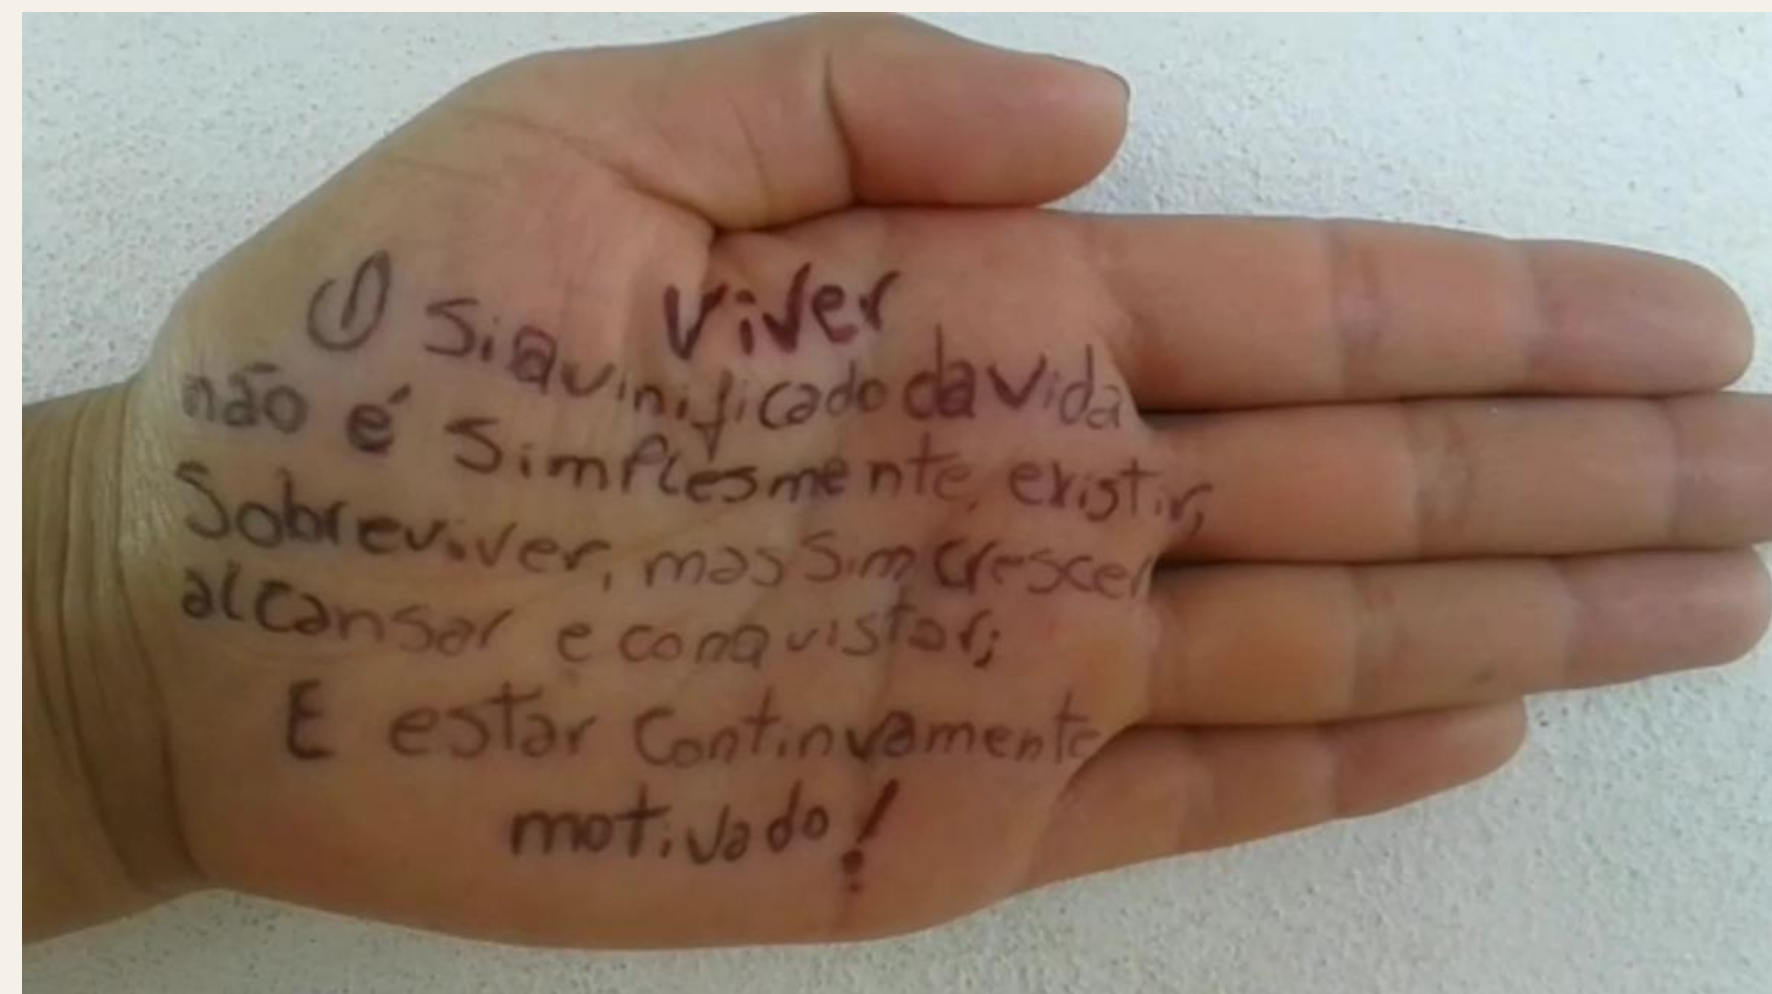 Viver
O Siquinificado da vida
não é Simplesmente, existir,
Sobreviver, mas Sim crescer
alcansar e conquistar;
E estar Continuamente
motivado!